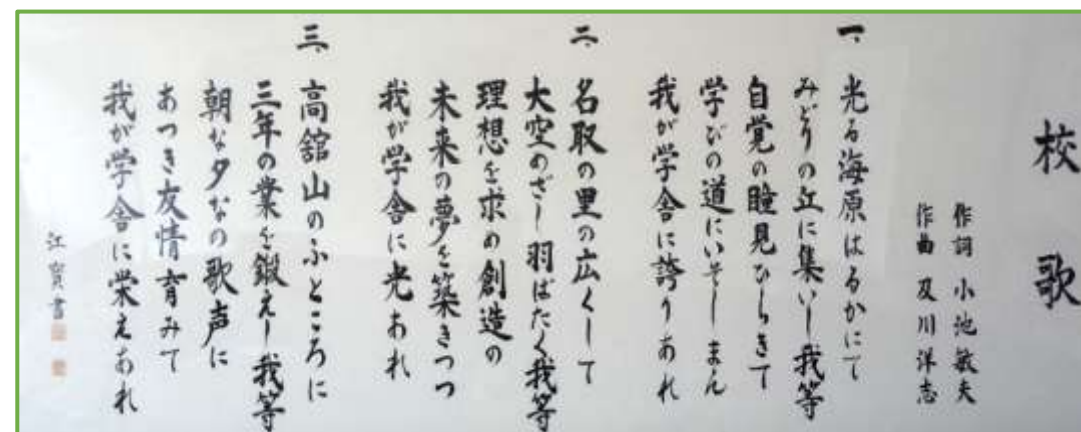 校歌
作詞 小池敏夫
作曲 及川洋志
一、光る海原はるかにて
みどりの丘に集いし我等
自覚の瞳見ひらきて
学びの道にいそしまん
我が学舎に誇りあれ
二、名取の里の広くして
大空めざし羽ばたく我等
理想を求め創造の
未来の夢を築きつつ
我が学舎に光あれ
三、高舘山のふところに
三年の業を鍛えし我等
朝な夕なの歌声に
あつき友情育みて
我が学舎に栄えあれ
江寳書